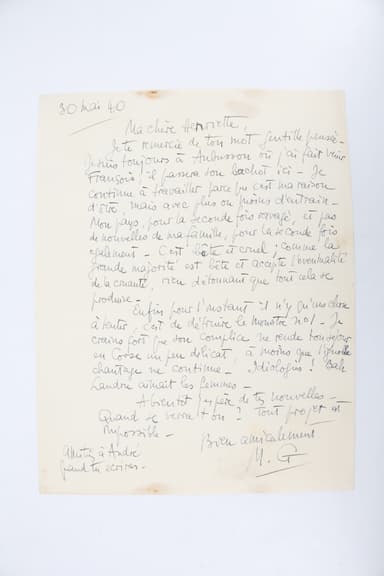 30 Mai 40
Ma chère Henriette,
Je te remercie de ton mot gentille pensée.
Je suis toujours à Aubusson où j'ai fait venir
François il passera son bachot ici - Je
continue à travailler parce que c'est ma raison
d'être, mais avec plus ou moins d'entrain -
Mon pays, pour la seconde fois ravagé, et pas
de nouvelles de ma famille, pour la seconde fois
également - C'est bête et cruel ; comme la
grande majorité est bête et accepte l'éventualité
de la cruauté, rien d'étonnant que tout cela se
produise -
Enfin pour l'instant il n'y qu'une chose
à tenter, c'est de détruire le monstre n°1 - Je
crains fort que son complice ne rende ton séjour
en Corse un peu délicat, à moins que l'ignoble
chantage ne continue - Idéologues ! Bah
Landru aimait les femmes -
A bientôt j'espère de tes nouvelles -
Quand se verra-t-on ? Tout projet est
impossible -
Bien amicalement
M. G
Amitiés à André
quand tu écriras -